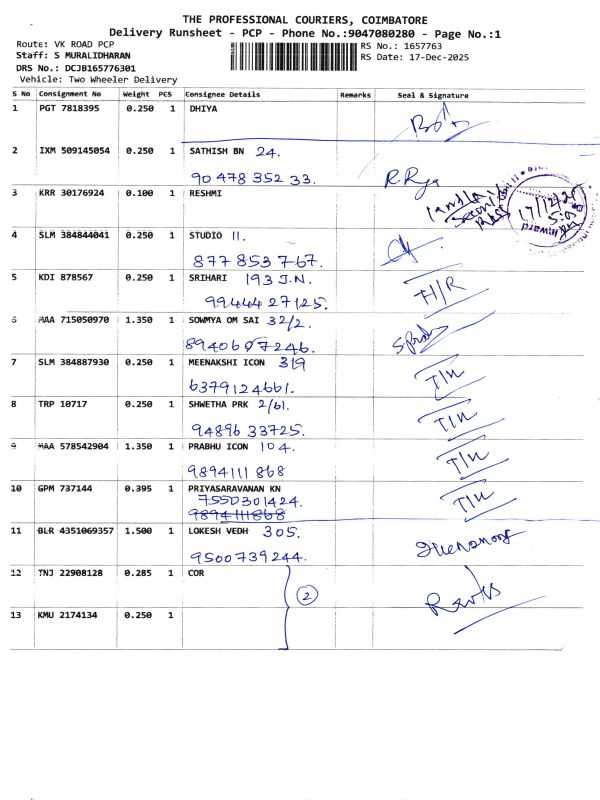 THE PROFESSIONAL COURIERS, COIMBATORE
Delivery Runsheet - PCP - Phone No.:9047080280 - Page No.:1
Route: VK ROAD PCP
Staff: S MURALIDHARAN
DRS No.: DCJB165776301
Vehicle: Two Wheeler Delivery
RS No.: 1657763
RS Date: 17-Dec-2025
S No Consignment No Weight PCS Consignee Details Remarks Seal & Signature
1 PGT 7818395 0.250 1 DHIYA
2 IXM 509145054 0.250 1 SATHISH BN 24.
90 478 352 33.
3 KRR 30176924 0.100 1 RESHMI
17/12/25
Inward
4 SLM 384844041 0.250 1 STUDIO 11.
877 853 767.
5 KDI 878567 0.250 1 SRIHARI 193 J.N.
99444 27125.
H/R
6 MAA 715050970 1.350 1 SOWMYA OM SAI 32/2.
8940607246.
7 SLM 384887930 0.250 1 MEENAKSHI ICON 319
6379124661.
8 TRP 10717 0.250 1 SHWETHA PRK 2/61.
94896 33725.
9 MAA 578542904 1.350 1 PRABHU ICON 104.
9894111 868
10 GPM 737144 0.395 1 PRIYASARAVANAN KN
7550301424.
9894111868
11 BLR 4351069357 1.500 1 LOKESH VEDH 305.
9500739244.
12 TNJ 22908128 0.285 1 COR
2
13 KMU 2174134 0.250 1